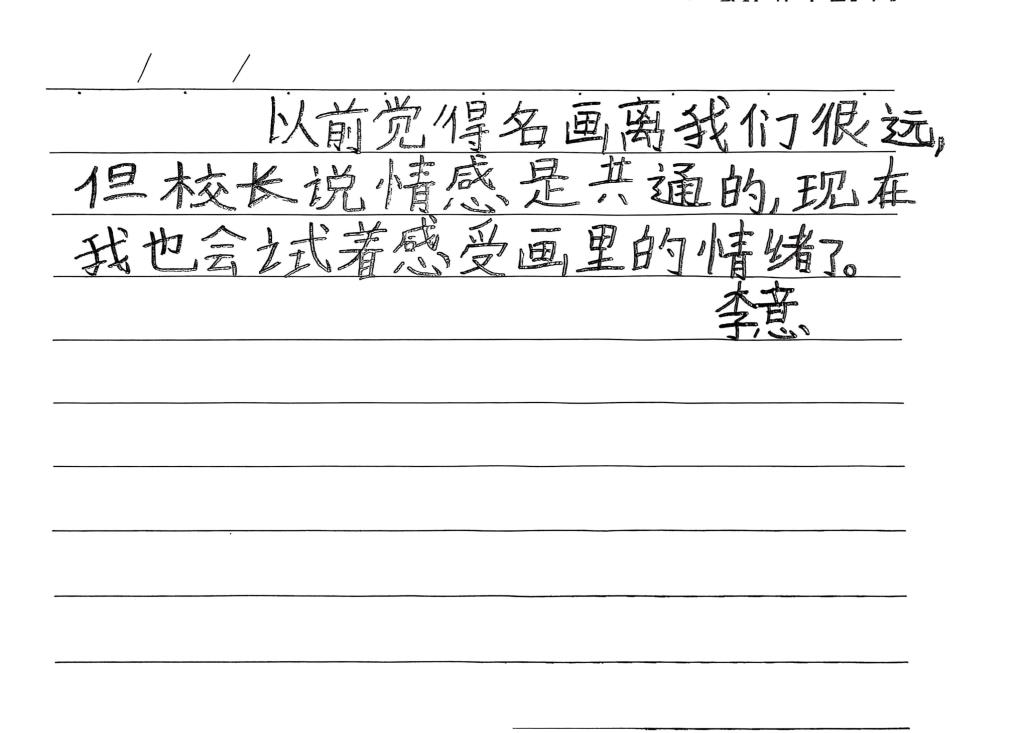 以前觉得名画离我们很远,
但校长说情感是共通的,现在
我也会试着感受画里的情绪了。
李意